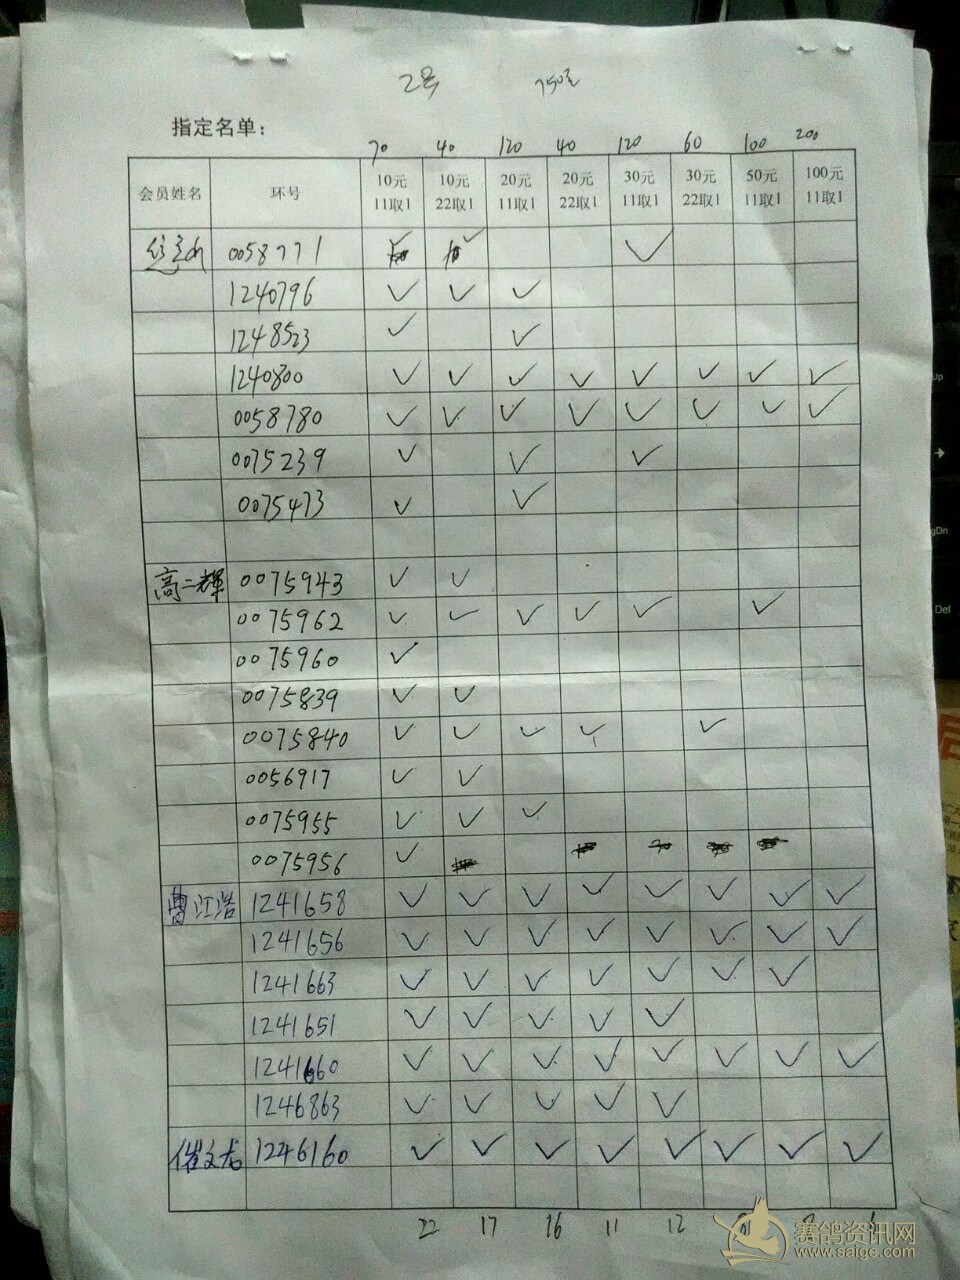 2号 750元
指定名单：
70 40 120 40 120 60 100 200
会员姓名 环号 10元 11取1 10元 22取1 20元 11取1 20元 22取1 30元 11取1 30元 22取1 50元 11取1 100元 11取1
0058771 ✓ ✓ ✓
1240796 ✓ ✓ ✓
1248523 ✓ ✓
1240800 ✓ ✓ ✓ ✓ ✓ ✓ ✓ ✓
0058780 ✓ ✓ ✓ ✓ ✓ ✓ ✓ ✓
0075239 ✓ ✓ ✓
0075473 ✓ ✓
高二輝 0075943 ✓ ✓
0075962 ✓ ✓ ✓ ✓ ✓ ✓
0075960 ✓
0075839 ✓ ✓
0075840 ✓ ✓ ✓ ✓ ✓
0056917 ✓ ✓
0075955 ✓ ✓ ✓
0075956 ✓
曹江浩 1241658 ✓ ✓ ✓ ✓ ✓ ✓ ✓ ✓
1241656 ✓ ✓ ✓ ✓ ✓ ✓ ✓ ✓
1241663 ✓ ✓ ✓ ✓ ✓ ✓ ✓
1241651 ✓ ✓ ✓ ✓ ✓
1241660 ✓ ✓ ✓ ✓ ✓ ✓ ✓ ✓
1246863 ✓ ✓ ✓ ✓ ✓
催文龙 1246160 ✓ ✓ ✓ ✓ ✓ ✓ ✓ ✓
22 17 16 11 12 8
赛鸽资讯网
www.saige.com
Del